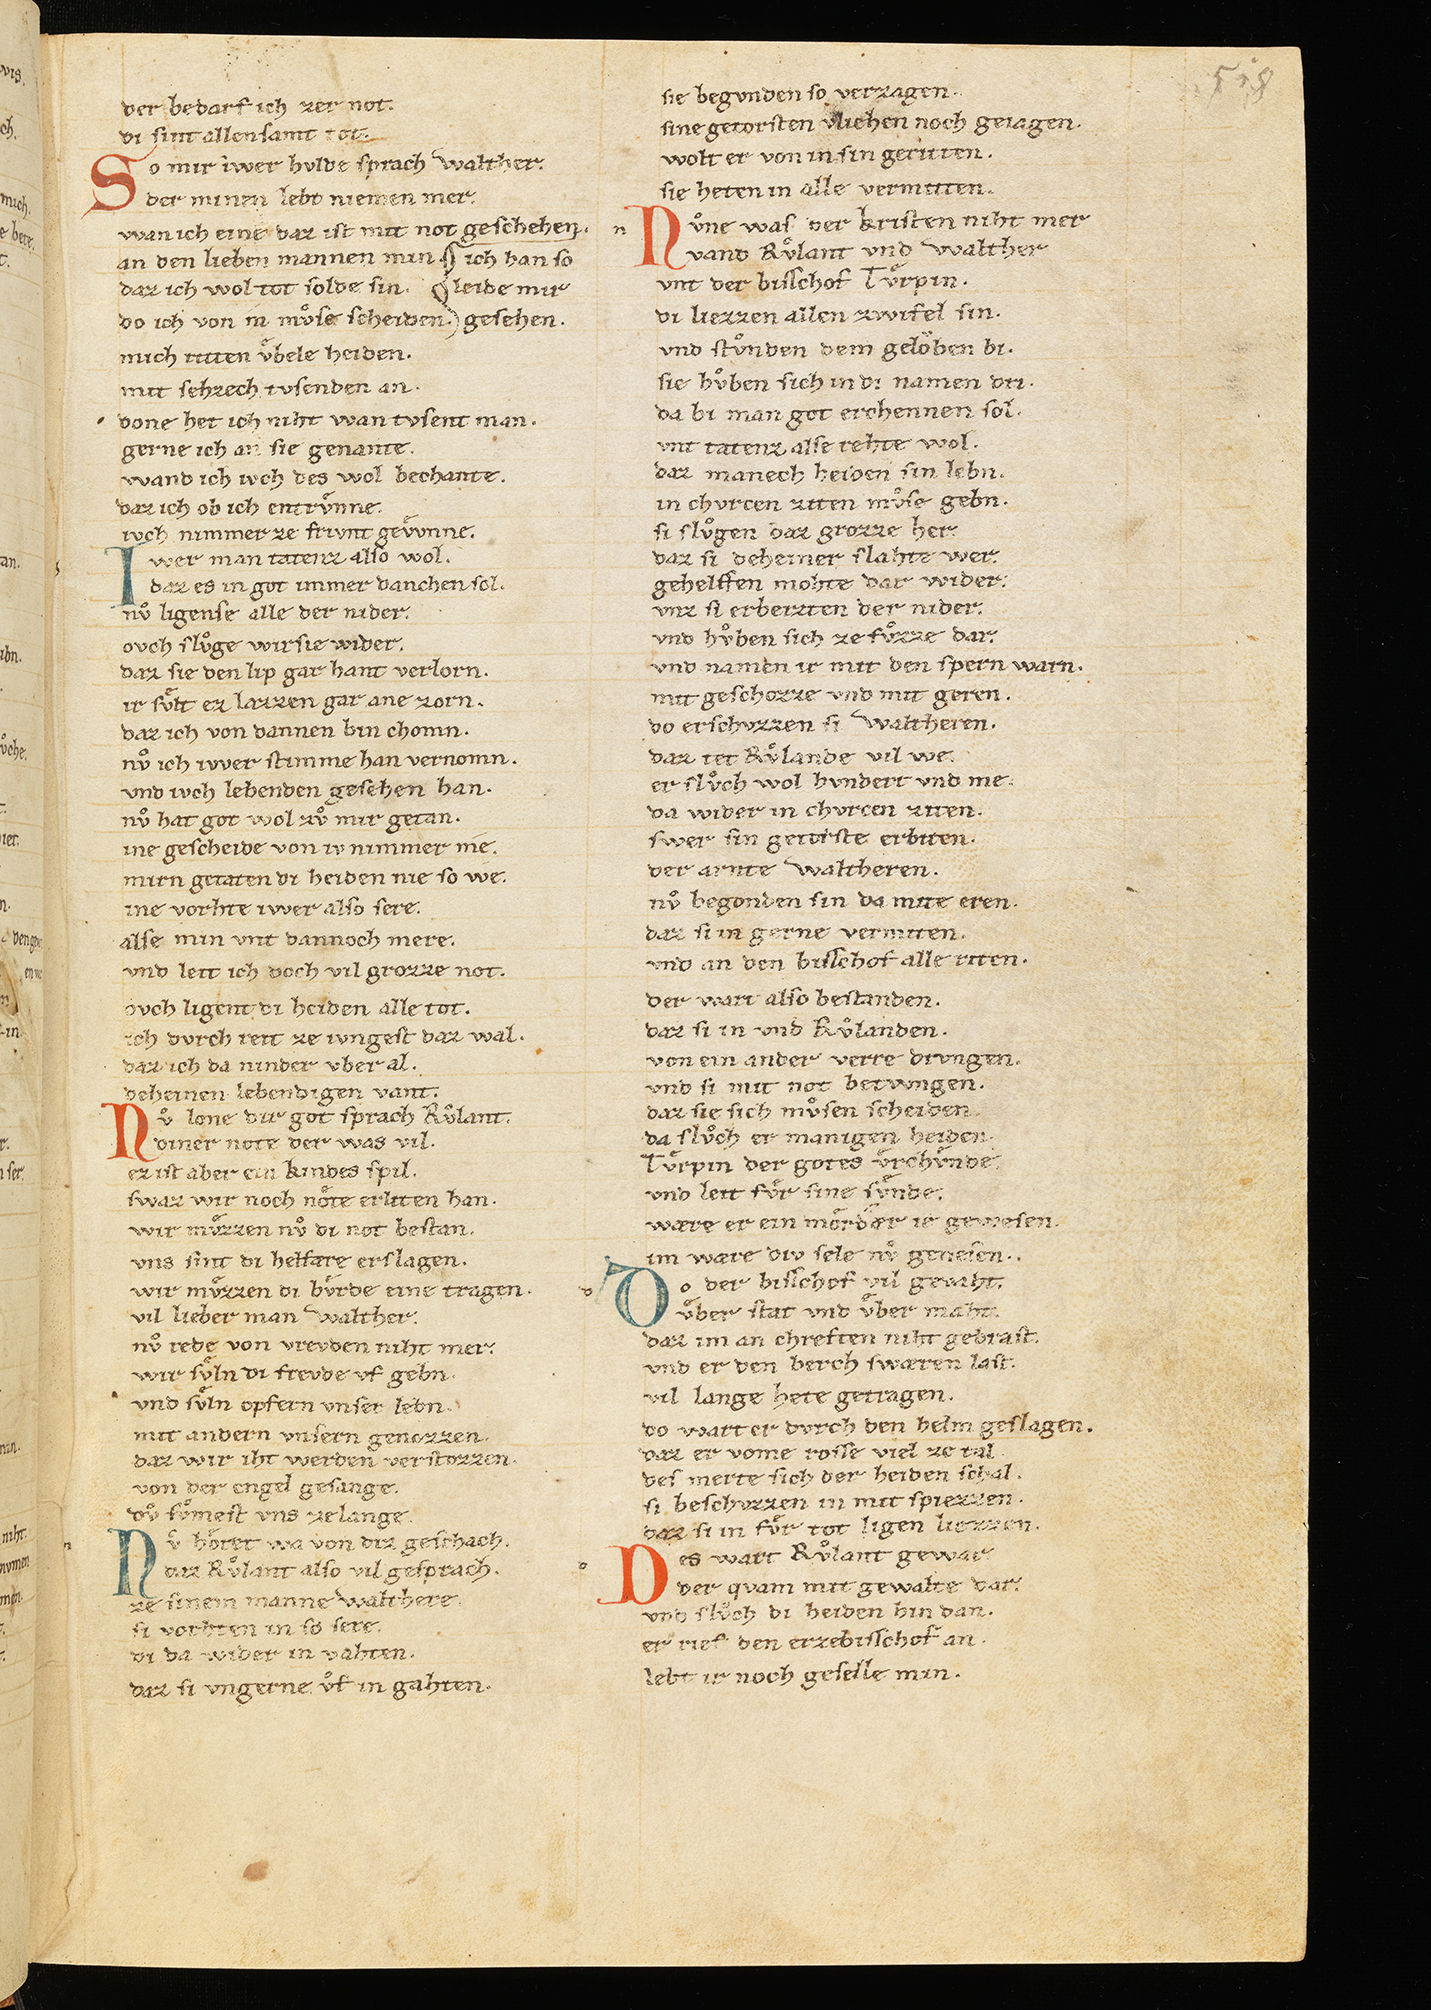 518
der bedarf ich zer not.
di sint allensamt tot.
So mir iwer hvlde sprach Walther.
der minen lebt niemen mer.
wan ich eine daz ist mit not geschehen.
an den lieben mannen min ich han so
daz ich wol tot solde sin. leide mir
do ich von in mvͦse scheiden. gesehen.
mich riten vͤbele heiden.
mit sehzech tvsenden an.
done het ich niht wan tvsent man.
gerne ich an sie genante.
wand ich ivch des wol bechante.
daz ich ob ich entrvͤnne.
ivch nimmer ze frivnt gevvͤnne.
Iwer man tatenz also wol.
daz es in got immer danchen sol.
nvͦ ligense alle der nider.
ovch slvͦge wir sie wider.
daz sie den lip gar hant verlorn.
ir svͤlt ez lazzen gar ane zorn.
daz ich von dannen bin chomn.
nvͦ ich iwer stimme han vernomn.
vnd ivch lebenden gesehen han.
nvͦ hat got wol zvͦ mir getan.
ine gescheide von iv nimmer me.
mirn getaten di heiden nie so we.
ine vorhte iwer also sere.
alse min vnt dannoch mere.
vnd leit ich doch vil grozze not.
ovch ligent di heiden alle tot.
ich dvrch reit ze ivngest daz wal.
daz ich da ninder vber al.
deheinen lebendigen vant.
Nvͦ lone dir got sprach Rvͦlant.
diner note der was vil.
ez ist aber ein kindes spil.
swaz wir noch noͤte erliten han.
wir mvͤzzen nvͦ di not bestan.
vns sint di helfare erslagen.
wir mvͤzzen di bvͤrde eine tragen.
vil lieber man Walther.
nvͦ rede von vrevden niht mer.
wir svͤln di frevde vf gebn.
vnd svͤln opfern vnser lebn.
mit andern vnsern genozzen.
daz wir iht werden verstozzen.
von der engel gesange.
dvͦ svͦmest vns ze lange.
Nvͦ hoͤret wa von diz geschach.
daz Rvͦlant also vil gesprach.
ze sinem manne walthere.
si vorhten in so sere.
di da wider in vahten.
daz si vngerne vͦf in gahten.
sie begvnden so verzagen.
sine getorsten vliehen noch geiagen.
wolt er von in sin geritten.
sie heten in alle vermitten.
n
Nvͦne was der kristen niht mer
wand Rvͦlant vnd Walther
vnt der bisschof Tvͤrpin.
di liezzen allen zwifel sin.
vnd stvͦnden dem geloͤben bi.
sie hvͦben sich in di namen dri.
da bi man got erchennen sol.
vnt tatenz alse rehte wol.
daz manech heiden sin lebn.
in chvrcen ziten mvͦse gebn.
si slvͦgen daz grozze her.
daz si deheiner slahte wer.
gehelffen mohte dar wider.
vnz si erbeizten der nider.
vnd hvͦben sich ze fvͦzze dar.
vnd namen ir mit den spern warn.
mit geschozze vnd mit geren.
do erschvzzen si Waltheren.
daz tet Rvͦlande vil we.
er slvͦch wol hvndert vnd me.
da wider in chvrcen ziten.
swer sin getorste erbiten.
der arnte Waltheren.
nvͦ begonden sin da mite eren.
daz si in gerne vermiten.
vnd an den bisschof alle riten.
der wart also bestanden.
daz si in vnd Rvͦlanden.
von ein ander verre drvngen.
vnd si mit not betvngen.
daz sie sich mvͦsen scheiden.
da slvͦch er manigen heiden.
Tvͤrpin der gotes vͤrchvͤnde.
vnd leit fvͤr sine svͤnde.
wære er ein mordær ie gewesen.
im ware div sele nvͦ genesen.
d
Do der bisschof vil gevaht.
vͤber stat vnd vͤber maht.
daz im an chreften niht gebrast.
vnd er den berch swæren last.
vil lange hete getragen.
do wart er dvrch den helm geslagen.
daz er vome rosse viel ze tal
des merte sich der heiden schal.
si beschvzzen in mit spiezzen.
daz si in fvͤr tot ligen liezzen.
d
Des wart Rvͦlant gewar
der qvam mit gewalte dar.
vnd slvͦch di heiden hin dan.
er rief den erzebisschof an.
lebt ir noch geselle min.